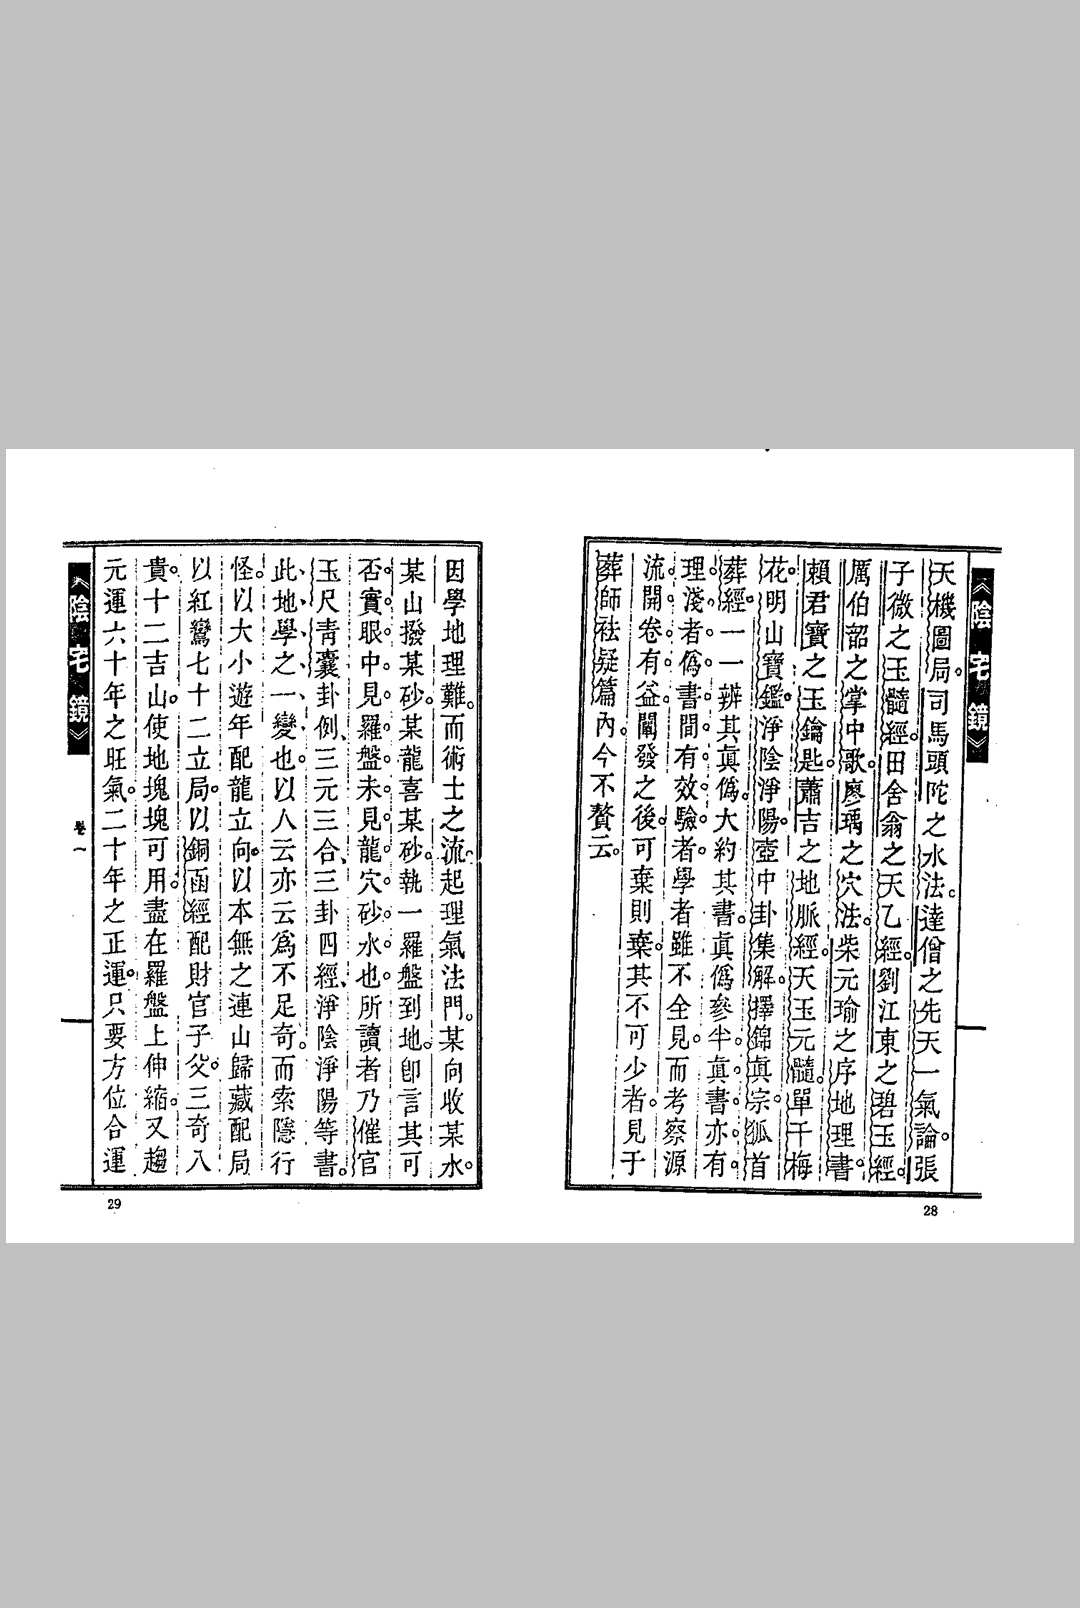 《陰宅鏡》
天機圖局。司馬頭陀之水法。達僧之先天一氣論。張
子微之玉髓經。田舍翁之天乙經。劉江東之碧玉經。
厲伯韶之掌中歌。廖瑀之穴法。柴元瑜之序地理書。
賴君寶之玉鑰匙。蕭吉之地脈經。天玉元髓。單千梅
花。明山寶鑑。淨陰淨陽。壺中卦集解。擇錦眞宗。狐首
葬經。一一辨其眞僞。大約其書。眞僞參半。眞書亦有。
理淺者。僞書間有效驗者。學者雖不全見。而考察源
流。開卷有益。闡發之後。可棄則棄。其不可少者。見于
葬師祛疑篇內。今不贅云。
28
因學地理難。而術士之流。起理氣法門。某向收某水。
某山撥某砂。某龍喜某砂。執一羅盤到地。卽言其可
否。實眼中見羅盤。未見龍穴砂水也。所讀者乃催官
玉尺靑囊卦例、三元三合、三卦四經、淨陰淨陽等書。
此地學之一變也。以人云亦云爲不足奇。而索隱行
怪。以大小遊年配龍立向。以本無之連山歸藏配局
以紅鸞七十二立局。以銅函經配財官子父。三奇八
貴。十二吉山。使地塊塊可用。盡在羅盤上伸縮。又趨
元運六十年之旺氣。二十年之正運。只要方位合運
《陰宅鏡》
卷一
29